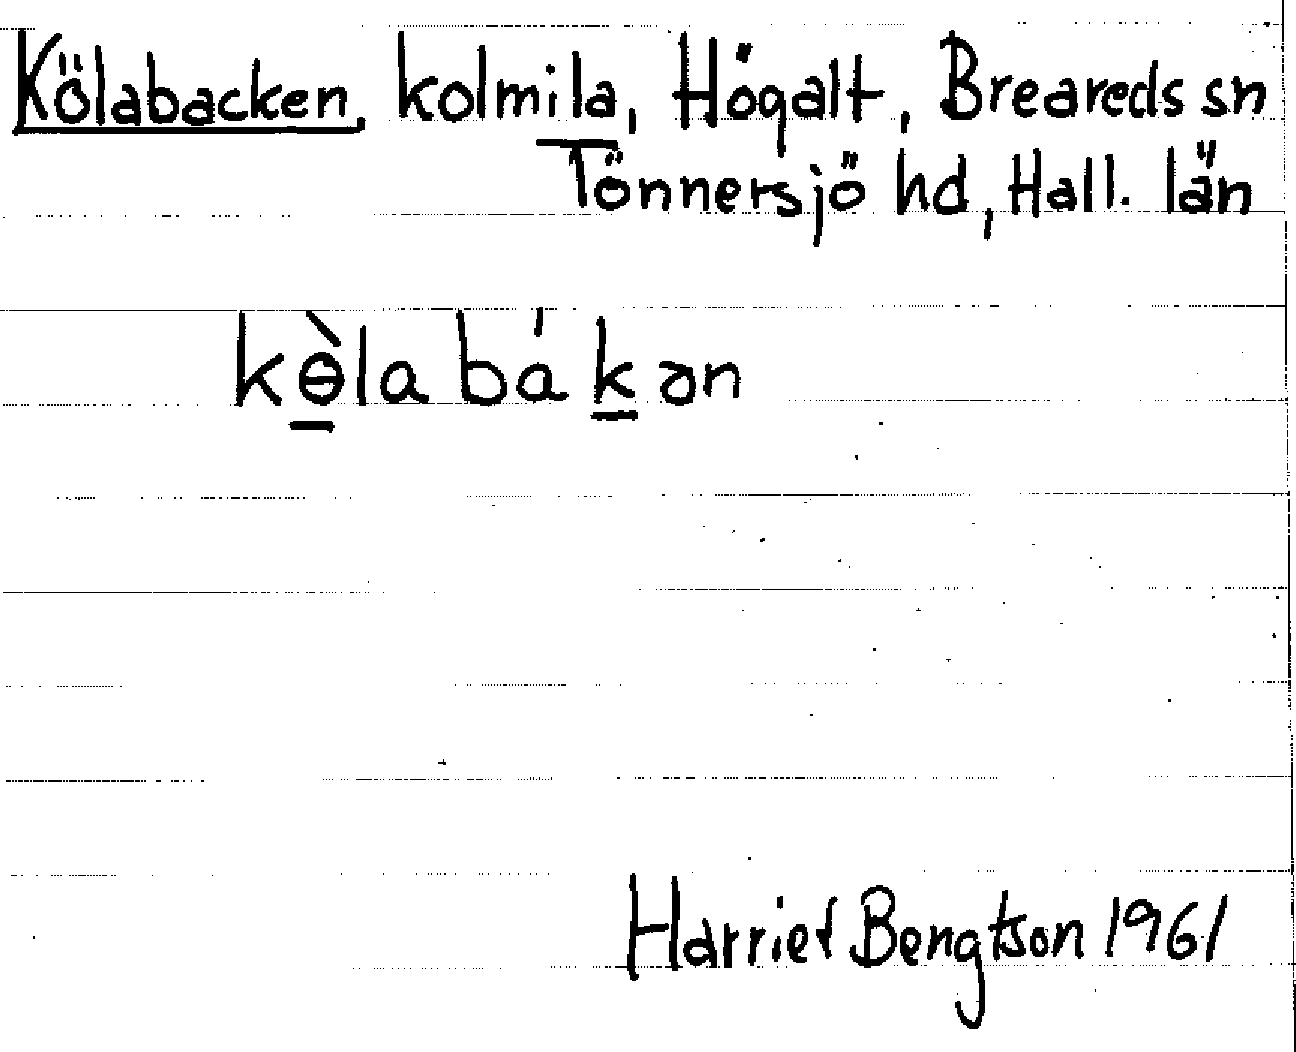 Kölabacken, kolmila, Högalt, Breareds sn
Tönnersjö hd, Hall. län
kɵ̀labákən
Harriet Bengtson 1961